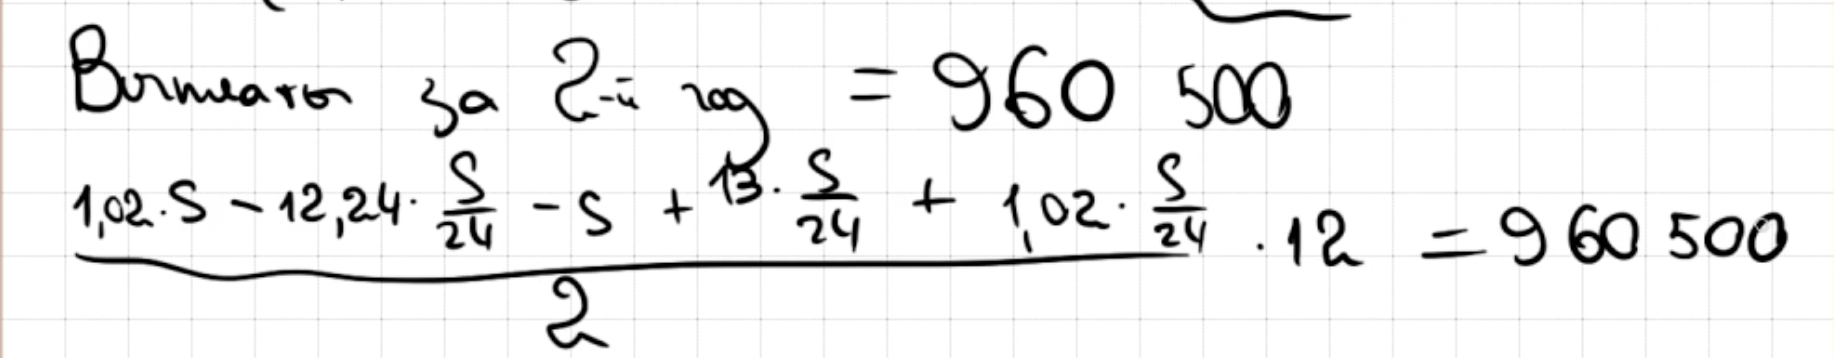 Выплаты за 2-й год = 960 500
(1,02·S - 12,24·S/24 - S + 13·S/24 + 1,02·S/24)/2 · 12 = 960 500